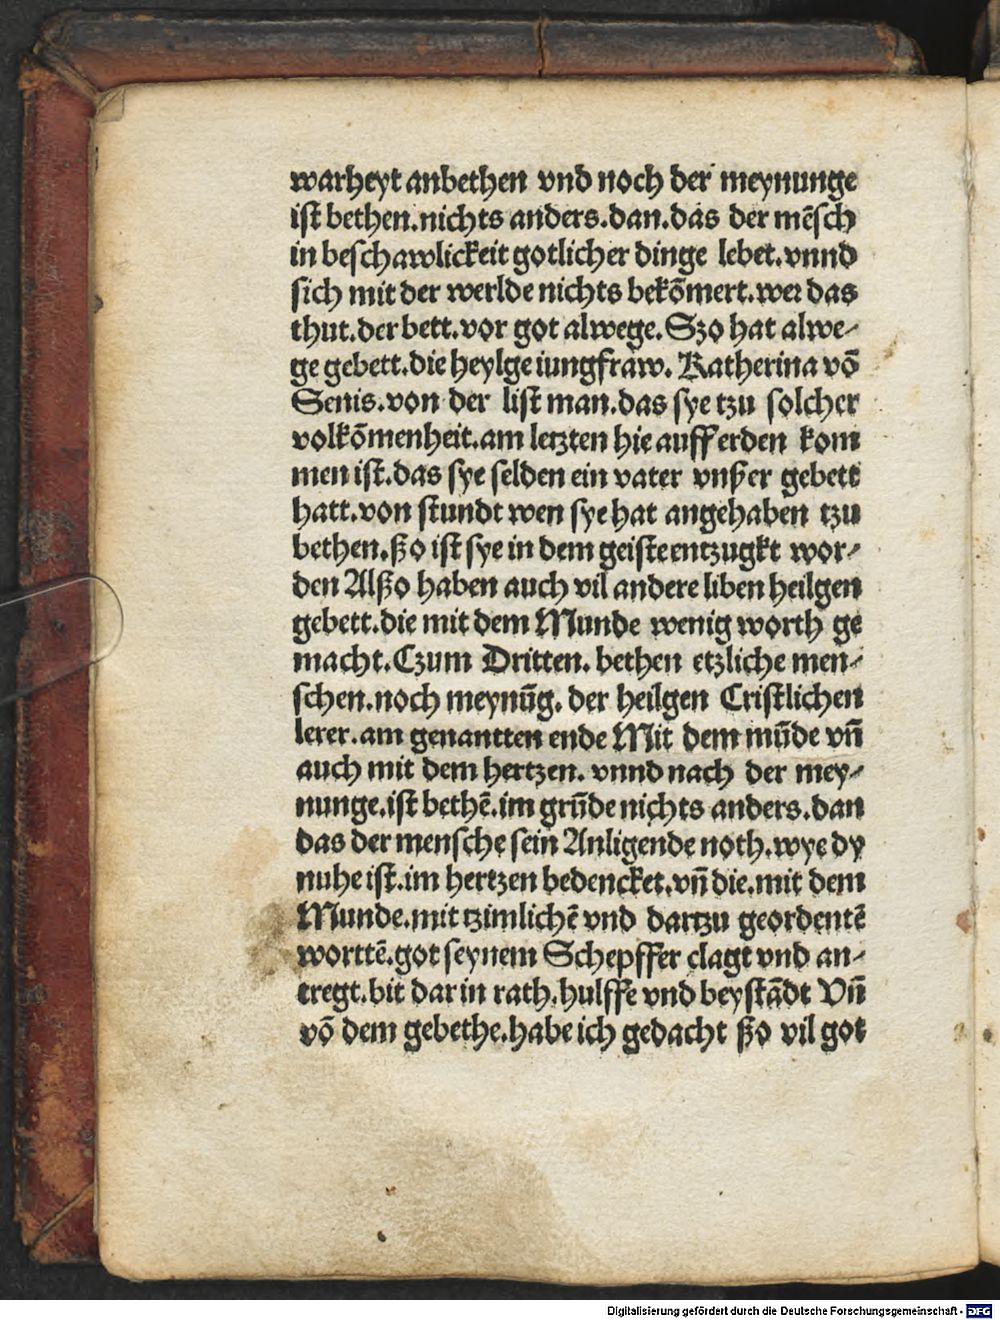 warheyt anbethen vnd noch der meynunge
iſt bethen.nichts anders.dan.das der mēſch
in beſchawlickeit gotlicher dinge lebet.vnnd
ſich mit der werlde nichts bekōmert.wer das
thut.der bett.vor got alwege.Szo hat alwe⸗
ge gebett.die heylge iungfraw. Katherina vō
Senis.von der liſt man.das ſye tzu ſolcher
volkōmenheit.am letzten hie auff erden kom
men iſt.das ſye ſelden ein vater vnßer gebett
hatt.von ſtundt wen ſye hat angehaben tzu
bethen.ßo iſt ſye in dem geiſte entzugkt wor⸗
den Alßo haben auch vil andere liben heilgen
gebett.die mit dem Munde wenig worth ge
macht.Czum Dritten. bethen etzliche men⸗
ſchen.noch meynūg. der heilgen Criſtlichen
lerer.am genantten ende Mit dem mūde vn̄
auch mit dem hertzen. vnnd nach der mey⸗
nunge.iſt bethē.im grūde nichts anders.dan
das der menſche ſein Anligende noth.wye dy
nuhe iſt.im hertzen bedencket.vn̄ die.mit dem
Munde.mit tzimlichē vnd dartzu geordentē
worttē.got ſeynem Schepffer clagt vnd an⸗
tregt.bit dar in rath.hulffe vnd beyſtādt Vn̄
vō dem gebethe.habe ich gedacht ßo vil got
Digitalisierung gefördert durch die Deutsche Forschungsgemeinschaft - DFG